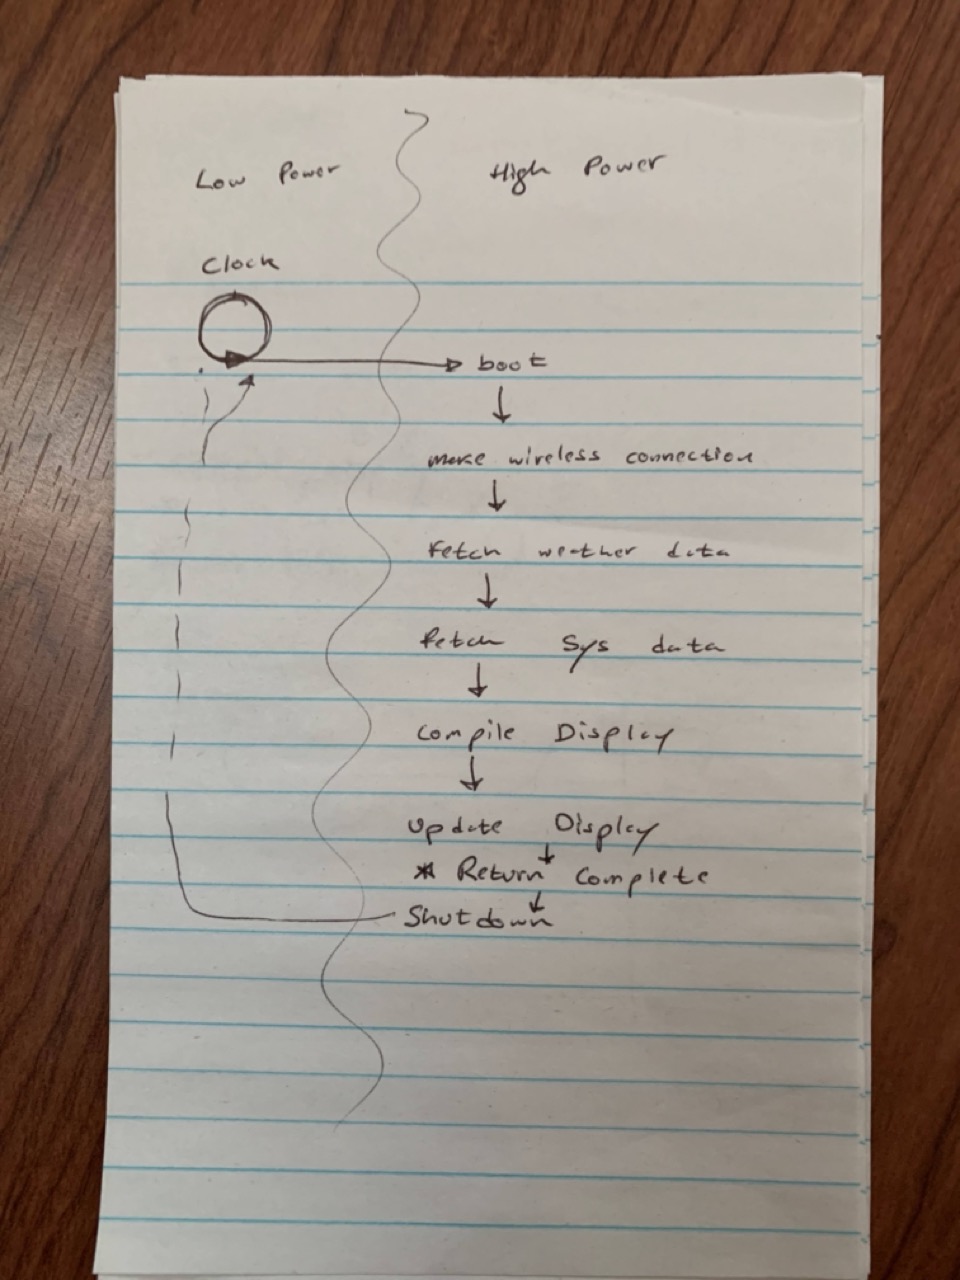 Low Power
High Power
Clock
boot
make wireless connection
Fetch weather data
fetch Sys data
Compile Display
Update Display
* Return Complete
Shutdown